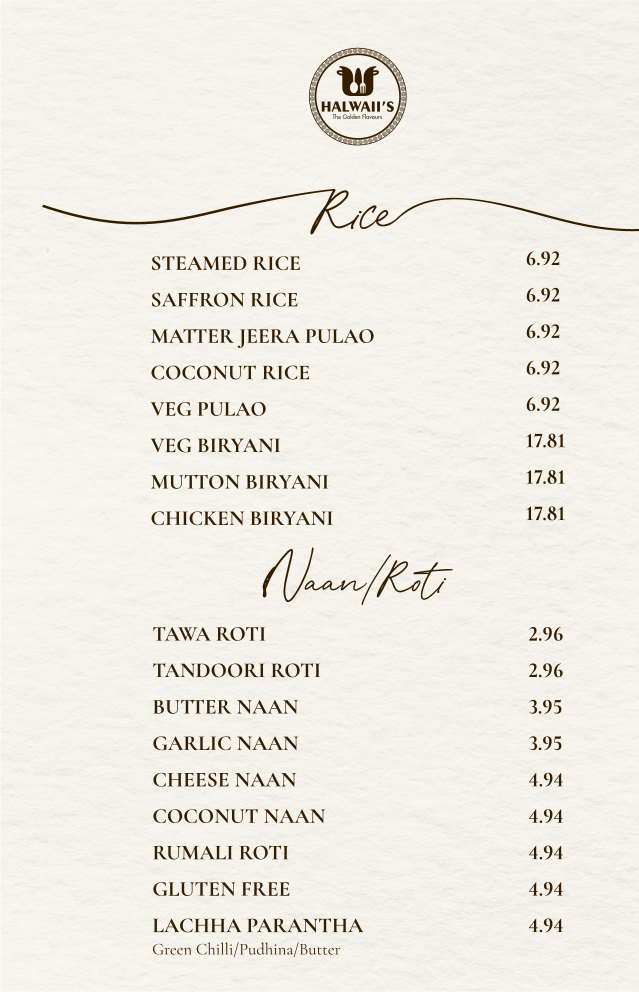 HALWAII'S
The Golden Flavours
Rice
STEAMED RICE 6.92
SAFFRON RICE 6.92
MATTER JEERA PULAO 6.92
COCONUT RICE 6.92
VEG PULAO 6.92
VEG BIRYANI 17.81
MUTTON BIRYANI 17.81
CHICKEN BIRYANI 17.81
Naan/Roti
TAWA ROTI 2.96
TANDOORI ROTI 2.96
BUTTER NAAN 3.95
GARLIC NAAN 3.95
CHEESE NAAN 4.94
COCONUT NAAN 4.94
RUMALI ROTI 4.94
GLUTEN FREE 4.94
LACHHA PARANTHA 4.94
Green Chilli/Pudhina/Butter